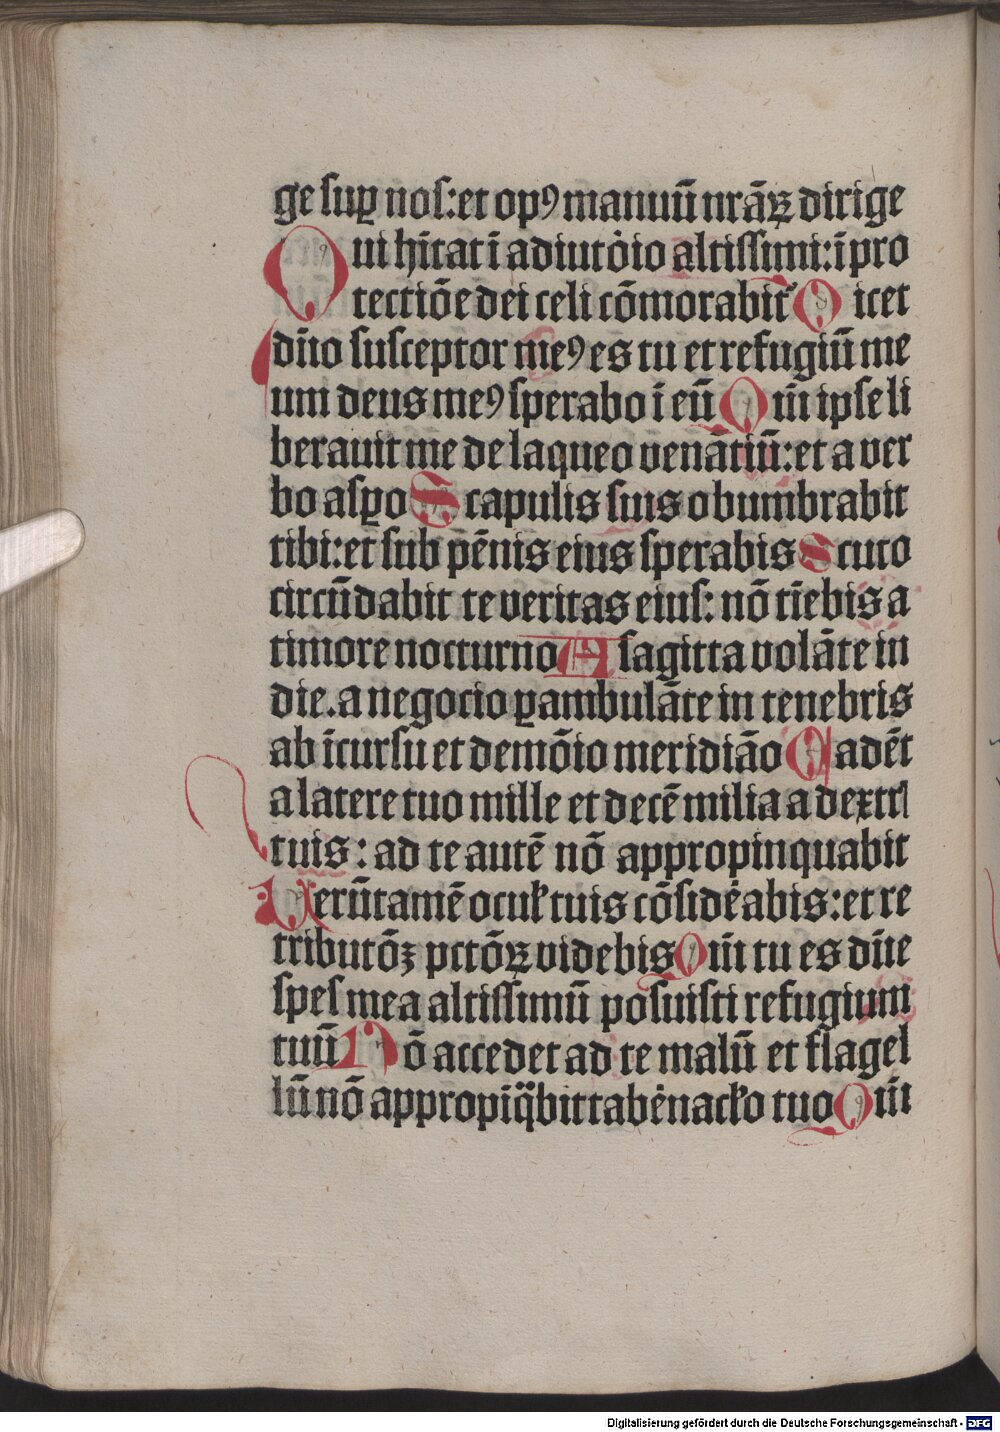 ge suꝑ nos: et opꝰ manuū nr̄aꝝ dirige
Qui hītat ī adiutòio altissimi: ī pro
tectiōe dei celi cōmorabit᷑ Dicet
dn̄o susceptor meꝰ es tu et refugiū me
um deus meꝰ sperabo i eū Qm̄ ipse li
berauit me de laqueo venātiū: et a ver
bo asꝑo Scapulis suis obumbrabit
tibi: et sub pēnis eius sperabis Scuto
circūdabit te veritas eius: nō tīebis a
timore nocturno A sagitta volāte in
die. a negocio ꝑambulāte in tenebris
ab īcursu et demōio meridiāo Cadēt
a latere tuo mille et decē milia a dextrꝭ
tuis: ad te autē nō appropinquabit
Uerūtamē oculꝭ tuis cōsidèabis: et re
tributōꝫ pctōꝝ videbis Qm̄ tu es dn̄e
spes mea altissimū posuisti refugium
tuū Nō accedet ad te malū et flagel
lū nō appropīq̈bit tabènaclo tuo Qm̄
Digitalisierung gefördert durch die Deutsche Forschungsgemeinschaft - DFG